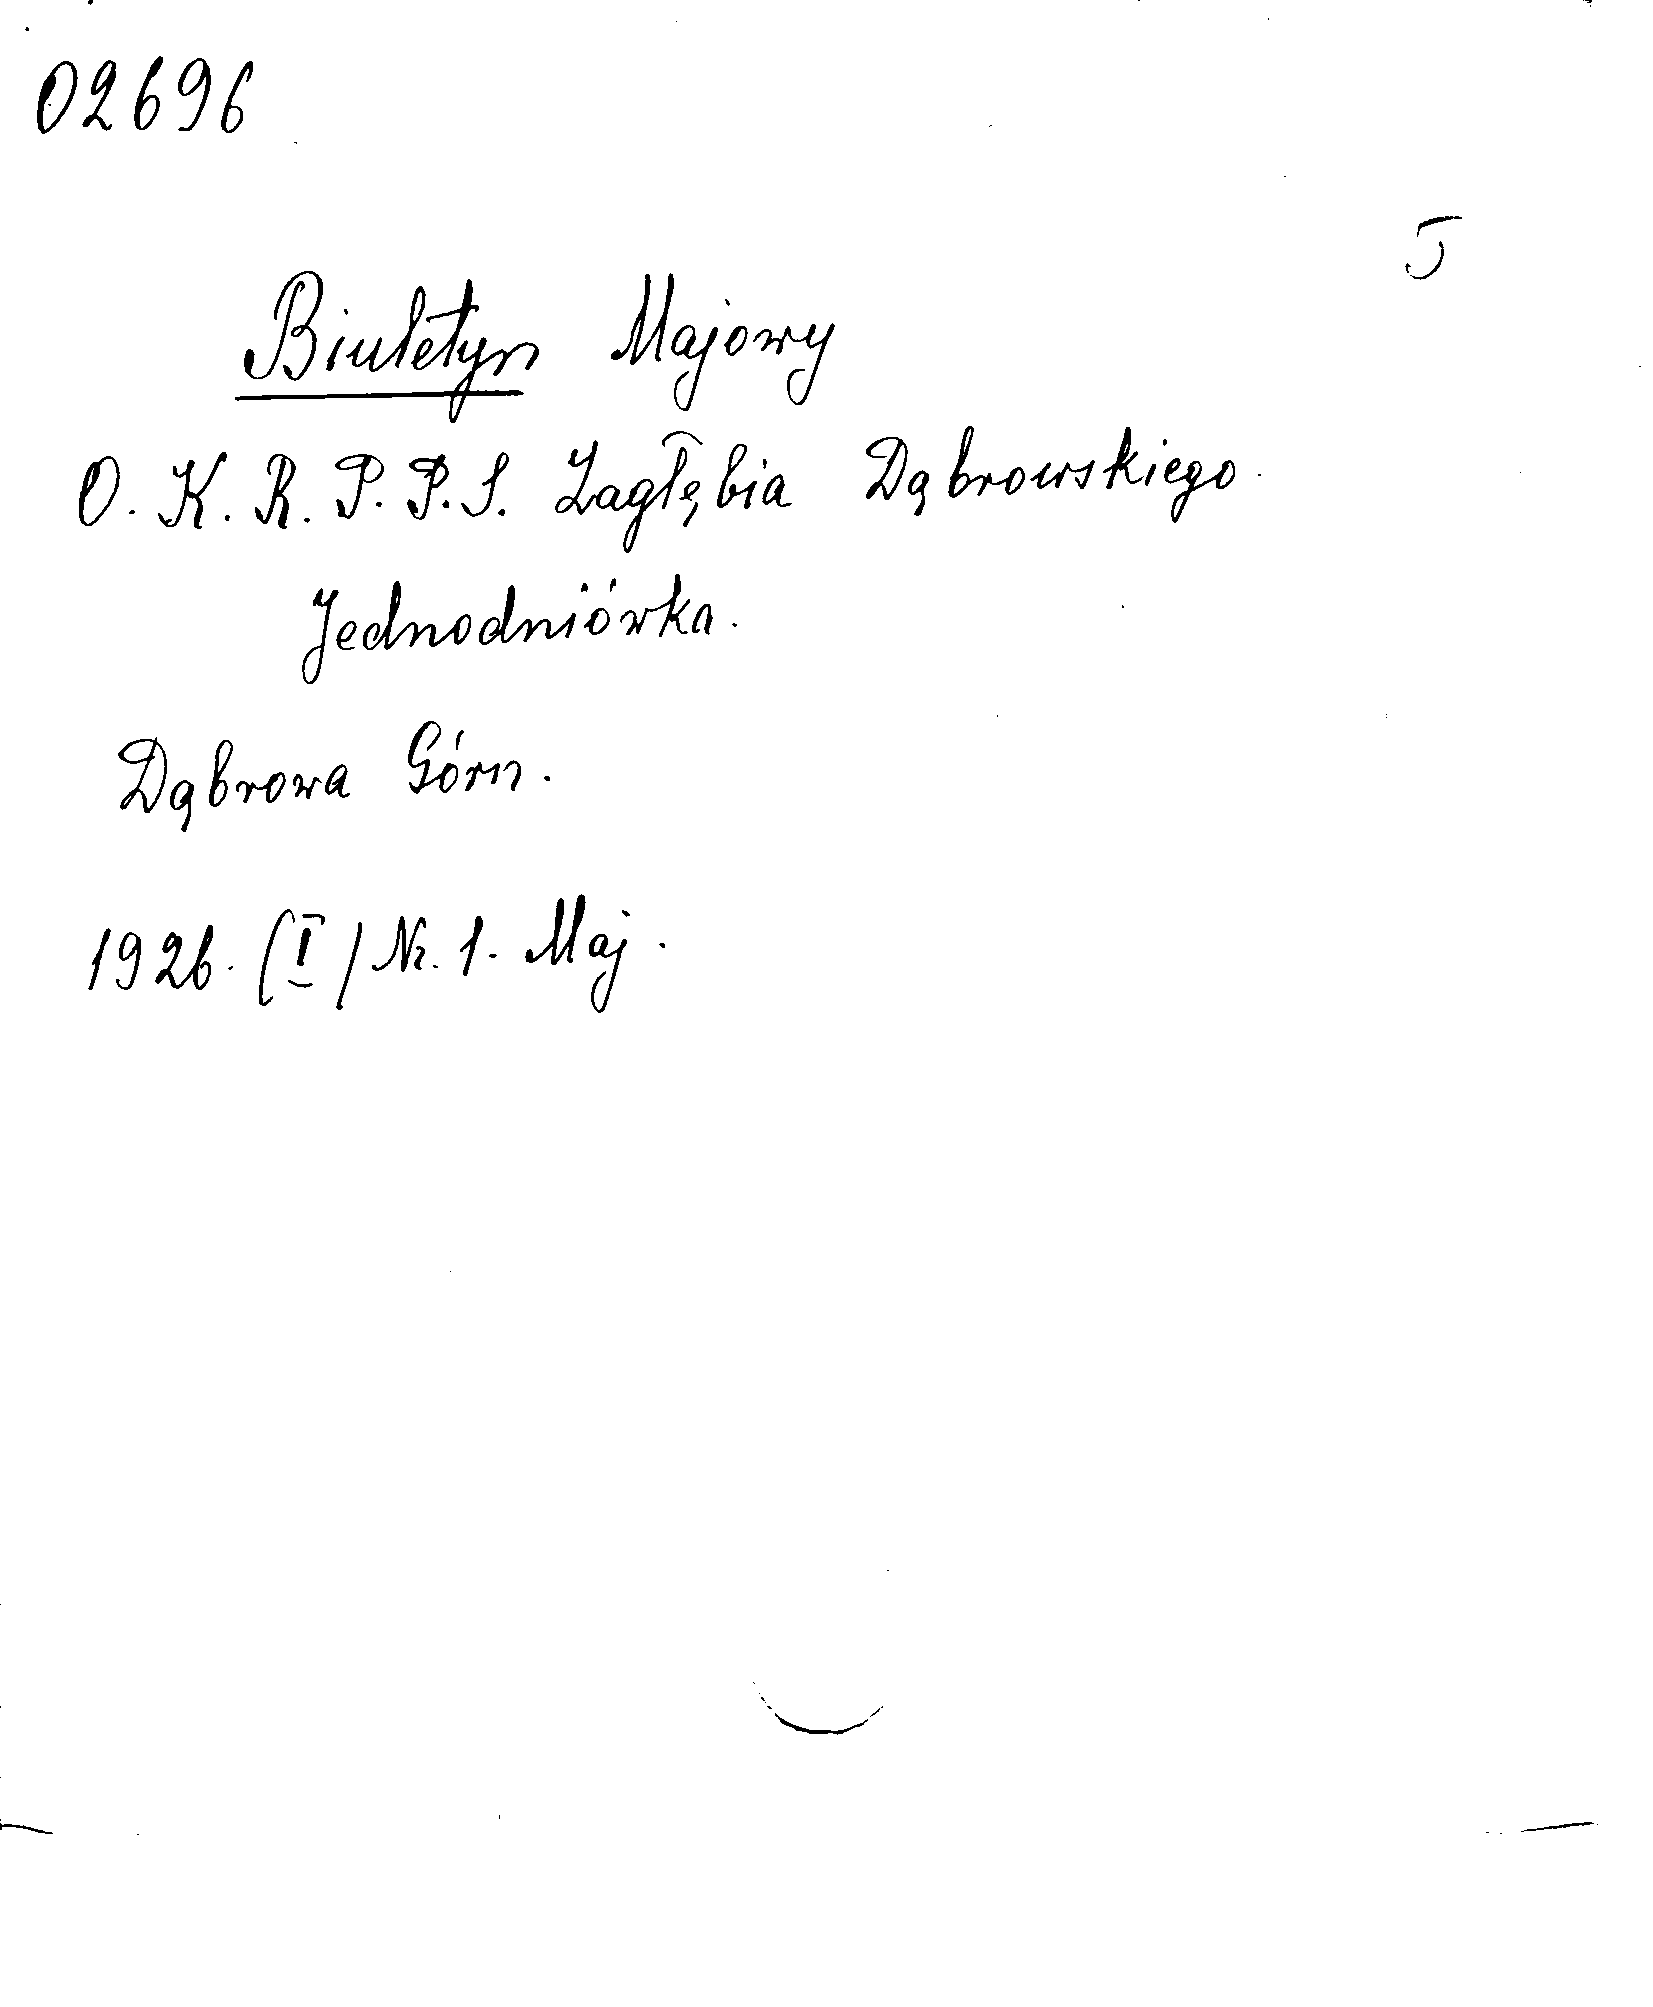 02696
I
Biuletyn Majowy
O. K. R. P. P. S. Zagłębia Dąbrowskiego.
Jednodniówka.
Dąbrowa Górn.
1926. (I) Nr. 1. Maj.